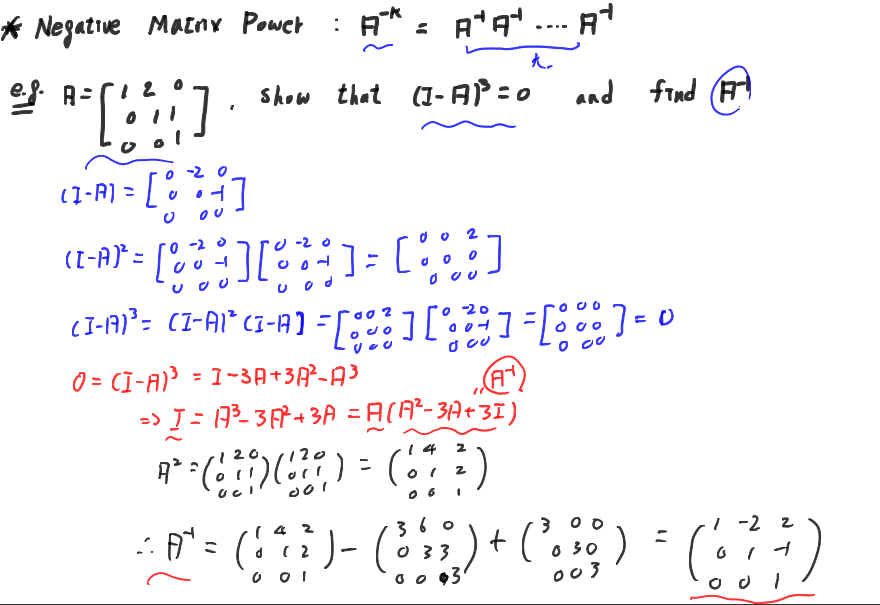 * Negative Matrix Power : A^{-k} = A^{-1} A^{-1} .... A^{-1}
k.
e.g. A = [1 2 0; 0 1 1; 0 0 1] , show that (I-A)^3 = 0 and find A^{-1}
(I-A) = [0 -2 0; 0 0 -1; 0 0 0]
(I-A)^2 = [0 -2 0; 0 0 -1; 0 0 0] [0 -2 0; 0 0 -1; 0 0 0] = [0 0 2; 0 0 0; 0 0 0]
(I-A)^3 = (I-A)^2 (I-A) = [0 0 2; 0 0 0; 0 0 0] [0 -2 0; 0 0 -1; 0 0 0] = [0 0 0; 0 0 0; 0 0 0] = 0
0 = (I-A)^3 = I-3A+3A^2-A^3
" A^{-1}
=> I = A^3-3A^2+3A = A(A^2-3A+3I)
A^2 = (1 2 0; 0 1 1; 0 0 1)(1 2 0; 0 1 1; 0 0 1) = (1 4 2; 0 1 2; 0 0 1)
∴ A^{-1} = (1 4 2; 0 1 2; 0 0 1) - (3 6 0; 0 3 3; 0 0 3) + (3 0 0; 0 3 0; 0 0 3) = (1 -2 2; 0 1 -1; 0 0 1)